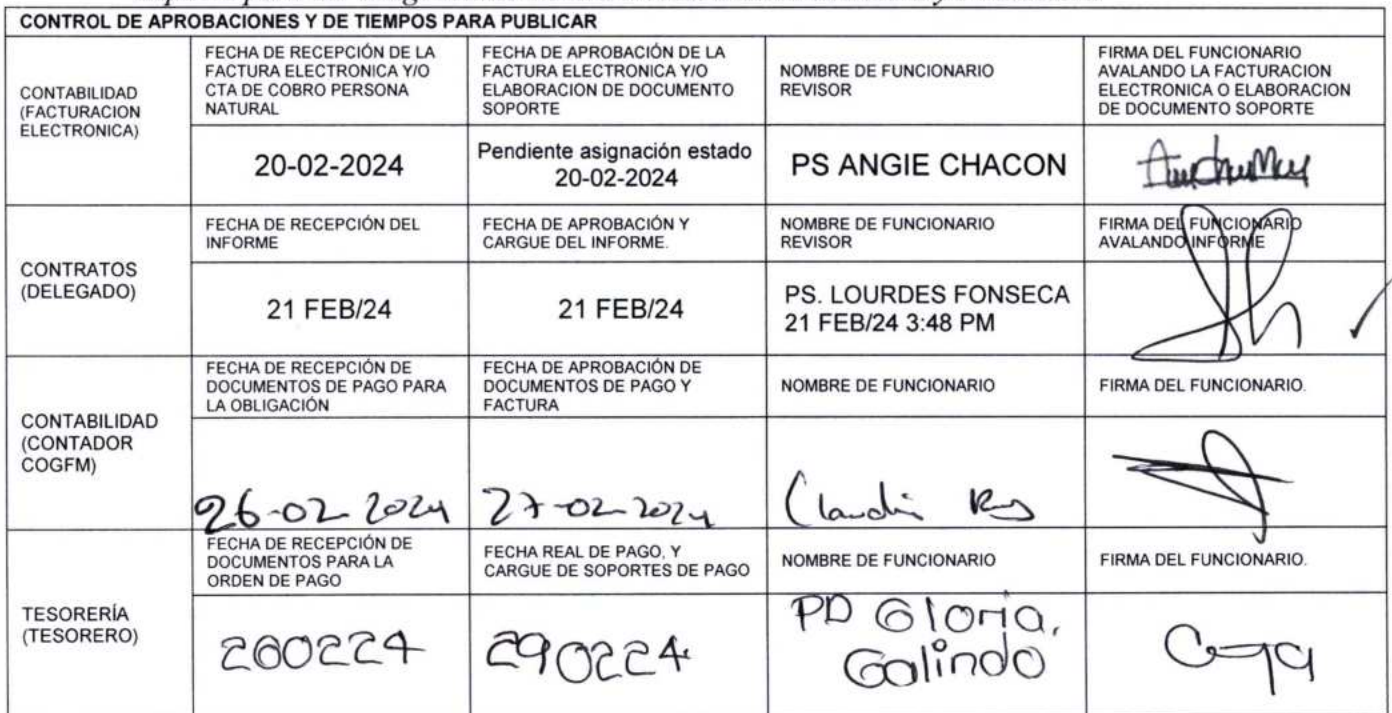 CONTROL DE APROBACIONES Y DE TIEMPOS PARA PUBLICAR
CONTABILIDAD
(FACTURACION
ELECTRONICA)
FECHA DE RECEPCIÓN DE LA
FACTURA ELECTRONICA Y/O
CTA DE COBRO PERSONA
NATURAL
FECHA DE APROBACIÓN DE LA
FACTURA ELECTRONICA Y/O
ELABORACION DE DOCUMENTO
SOPORTE
NOMBRE DE FUNCIONARIO
REVISOR
FIRMA DEL FUNCIONARIO
AVALANDO LA FACTURACION
ELECTRONICA O ELABORACION
DE DOCUMENTO SOPORTE
20-02-2024
Pendiente asignación estado
20-02-2024
PS ANGIE CHACON
CONTRATOS
(DELEGADO)
FECHA DE RECEPCIÓN DEL
INFORME
FECHA DE APROBACIÓN Y
CARGUE DEL INFORME.
NOMBRE DE FUNCIONARIO
REVISOR
FIRMA DEL FUNCIONARIO
AVALANDO INFORME
21 FEB/24
21 FEB/24
PS. LOURDES FONSECA
21 FEB/24 3:48 PM
CONTABILIDAD
(CONTADOR
COGFM)
FECHA DE RECEPCIÓN DE
DOCUMENTOS DE PAGO PARA
LA OBLIGACIÓN
FECHA DE APROBACIÓN DE
DOCUMENTOS DE PAGO Y
FACTURA
NOMBRE DE FUNCIONARIO
FIRMA DEL FUNCIONARIO.
26-02-2024
27-02-2024
Claudia
TESORERÍA
(TESORERO)
FECHA DE RECEPCIÓN DE
DOCUMENTOS PARA LA
ORDEN DE PAGO
FECHA REAL DE PAGO, Y
CARGUE DE SOPORTES DE PAGO
NOMBRE DE FUNCIONARIO
FIRMA DEL FUNCIONARIO.
290224
PD Gloria.
Galindo